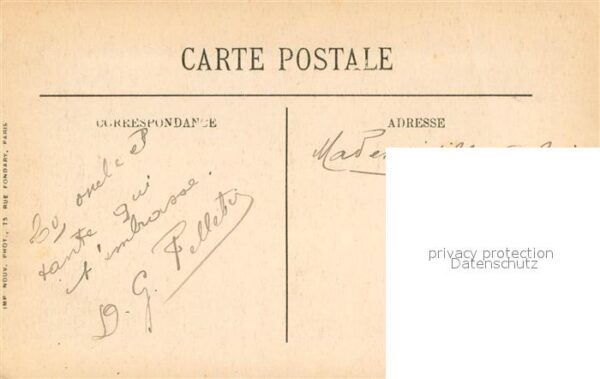 CARTE POSTALE
CORRESPONDANCE
ADRESSE
oncle et
tante qui
t'embrasse.
D. G. Pelletier
privacy protection
Datenschutz
IMP. NOUV. PHOT., 15 RUE FONDARY, PARIS